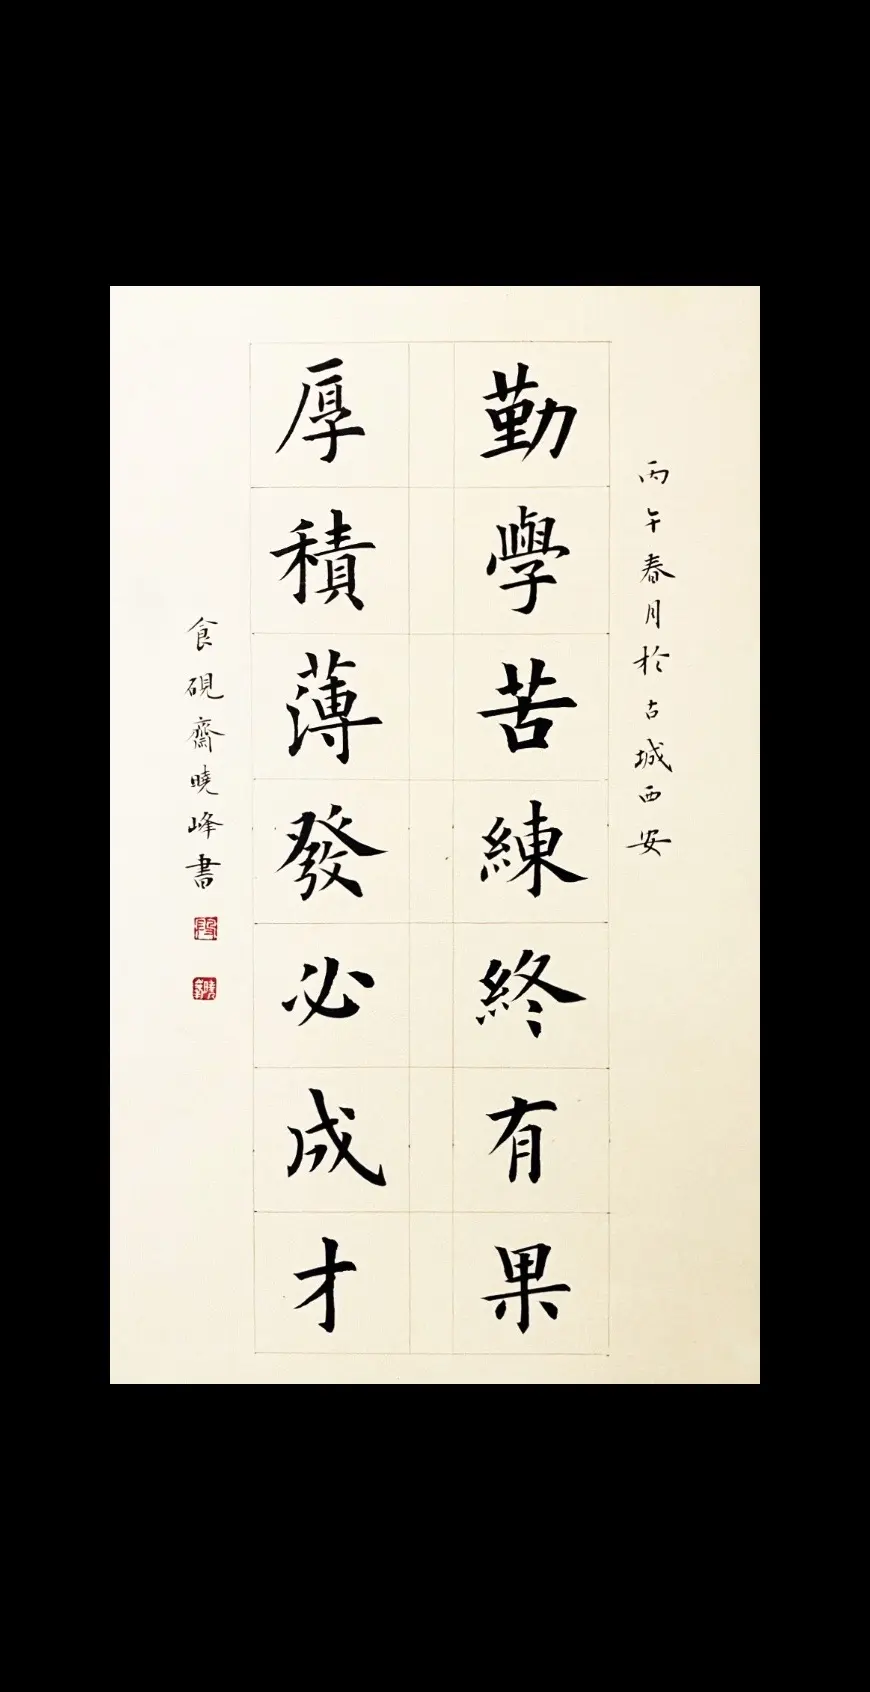 丙午春月於古城西安
勤學苦練終有果
厚積薄發必成才
食硯齋曉峰書